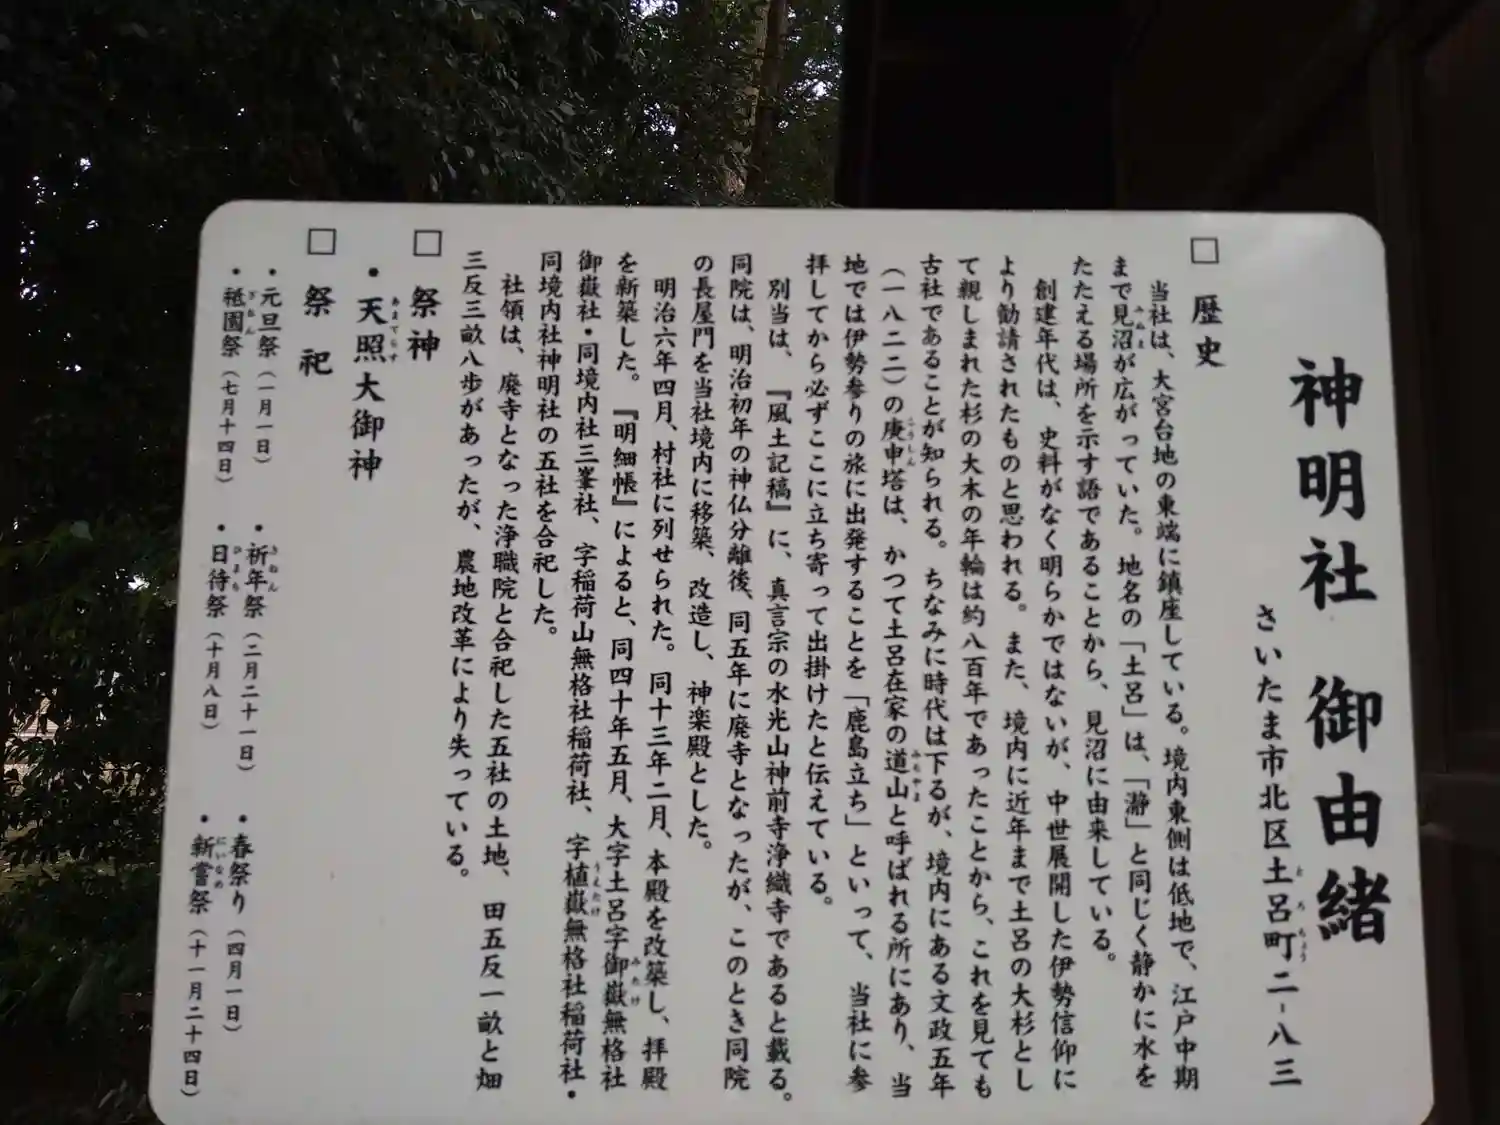 神明社 御由緒
さいたま市北区土呂町二-八三
□ 歴史
当社は、大宮台地の東端に鎮座している。境内東側は低地で、江戸中期
まで見沼が広がっていた。地名の「土呂」は、「瀞」と同じく静かに水を
たたえる場所を示す語であることから、見沼に由来している。
創建年代は、史料がなく明らかではないが、中世展開した伊勢信仰に
より勧請されたものと思われる。また、境内に近年まで土呂の大杉とし
て親しまれた杉の大木の年輪は約八百年であったことから、これを見ても
古社であることが知られる。ちなみに時代は下るが、境内にある文政五年
(一八二二)の庚申塔は、かつて土呂在家の道山と呼ばれる所にあり、当
地では伊勢参りの旅に出発することを「鹿島立ち」といって、当社に参
拝してから必ずここに立ち寄って出掛けたと伝えている。
別当は、『風土記稿』に、真言宗の水光山神前寺浄織寺であると載る。
同院は、明治初年の神仏分離後、同五年に廃寺となったが、このとき同院
の長屋門を当社境内に移築、改造し、神楽殿とした。
明治六年四月、村社に列せられた。同十三年二月、本殿を改築し、拝殿
を新築した。『明細帳』によると、同四十年五月、大字土呂字御嶽無格社
御嶽社・同境内社三峯社、字稲荷山無格社稲荷社、字植嶽無格社稲荷社・
同境内社神明社の五社を合祀した。
社領は、廃寺となった浄職院と合祀した五社の土地、田五反一畝と畑
三反三畝八歩があったが、農地改革により失っている。
□ 祭神
・天照大御神
□ 祭祀
・元旦祭(一月一日) ・祈年祭(二月二十一日) ・春祭り(四月一日)
・祗園祭(七月十四日) ・日待祭(十月八日) ・新嘗祭(十一月二十四日)